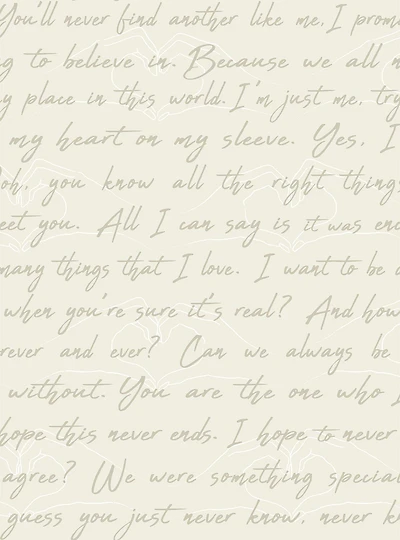 You'll never find another like me, I prom
g to believe in. Because we all n
y place in this world. I'm just me, try
my heart on my sleeve. Yes, I
oh, you know all the right things
eet you. All I can say is it was enc
many things that I love. I want to be
when you're sure it's real? And how
rever and ever? Can we always be
without. You are the one who I
hope this never ends. I hope to never
agree? We were something special
guess you just never know, never k